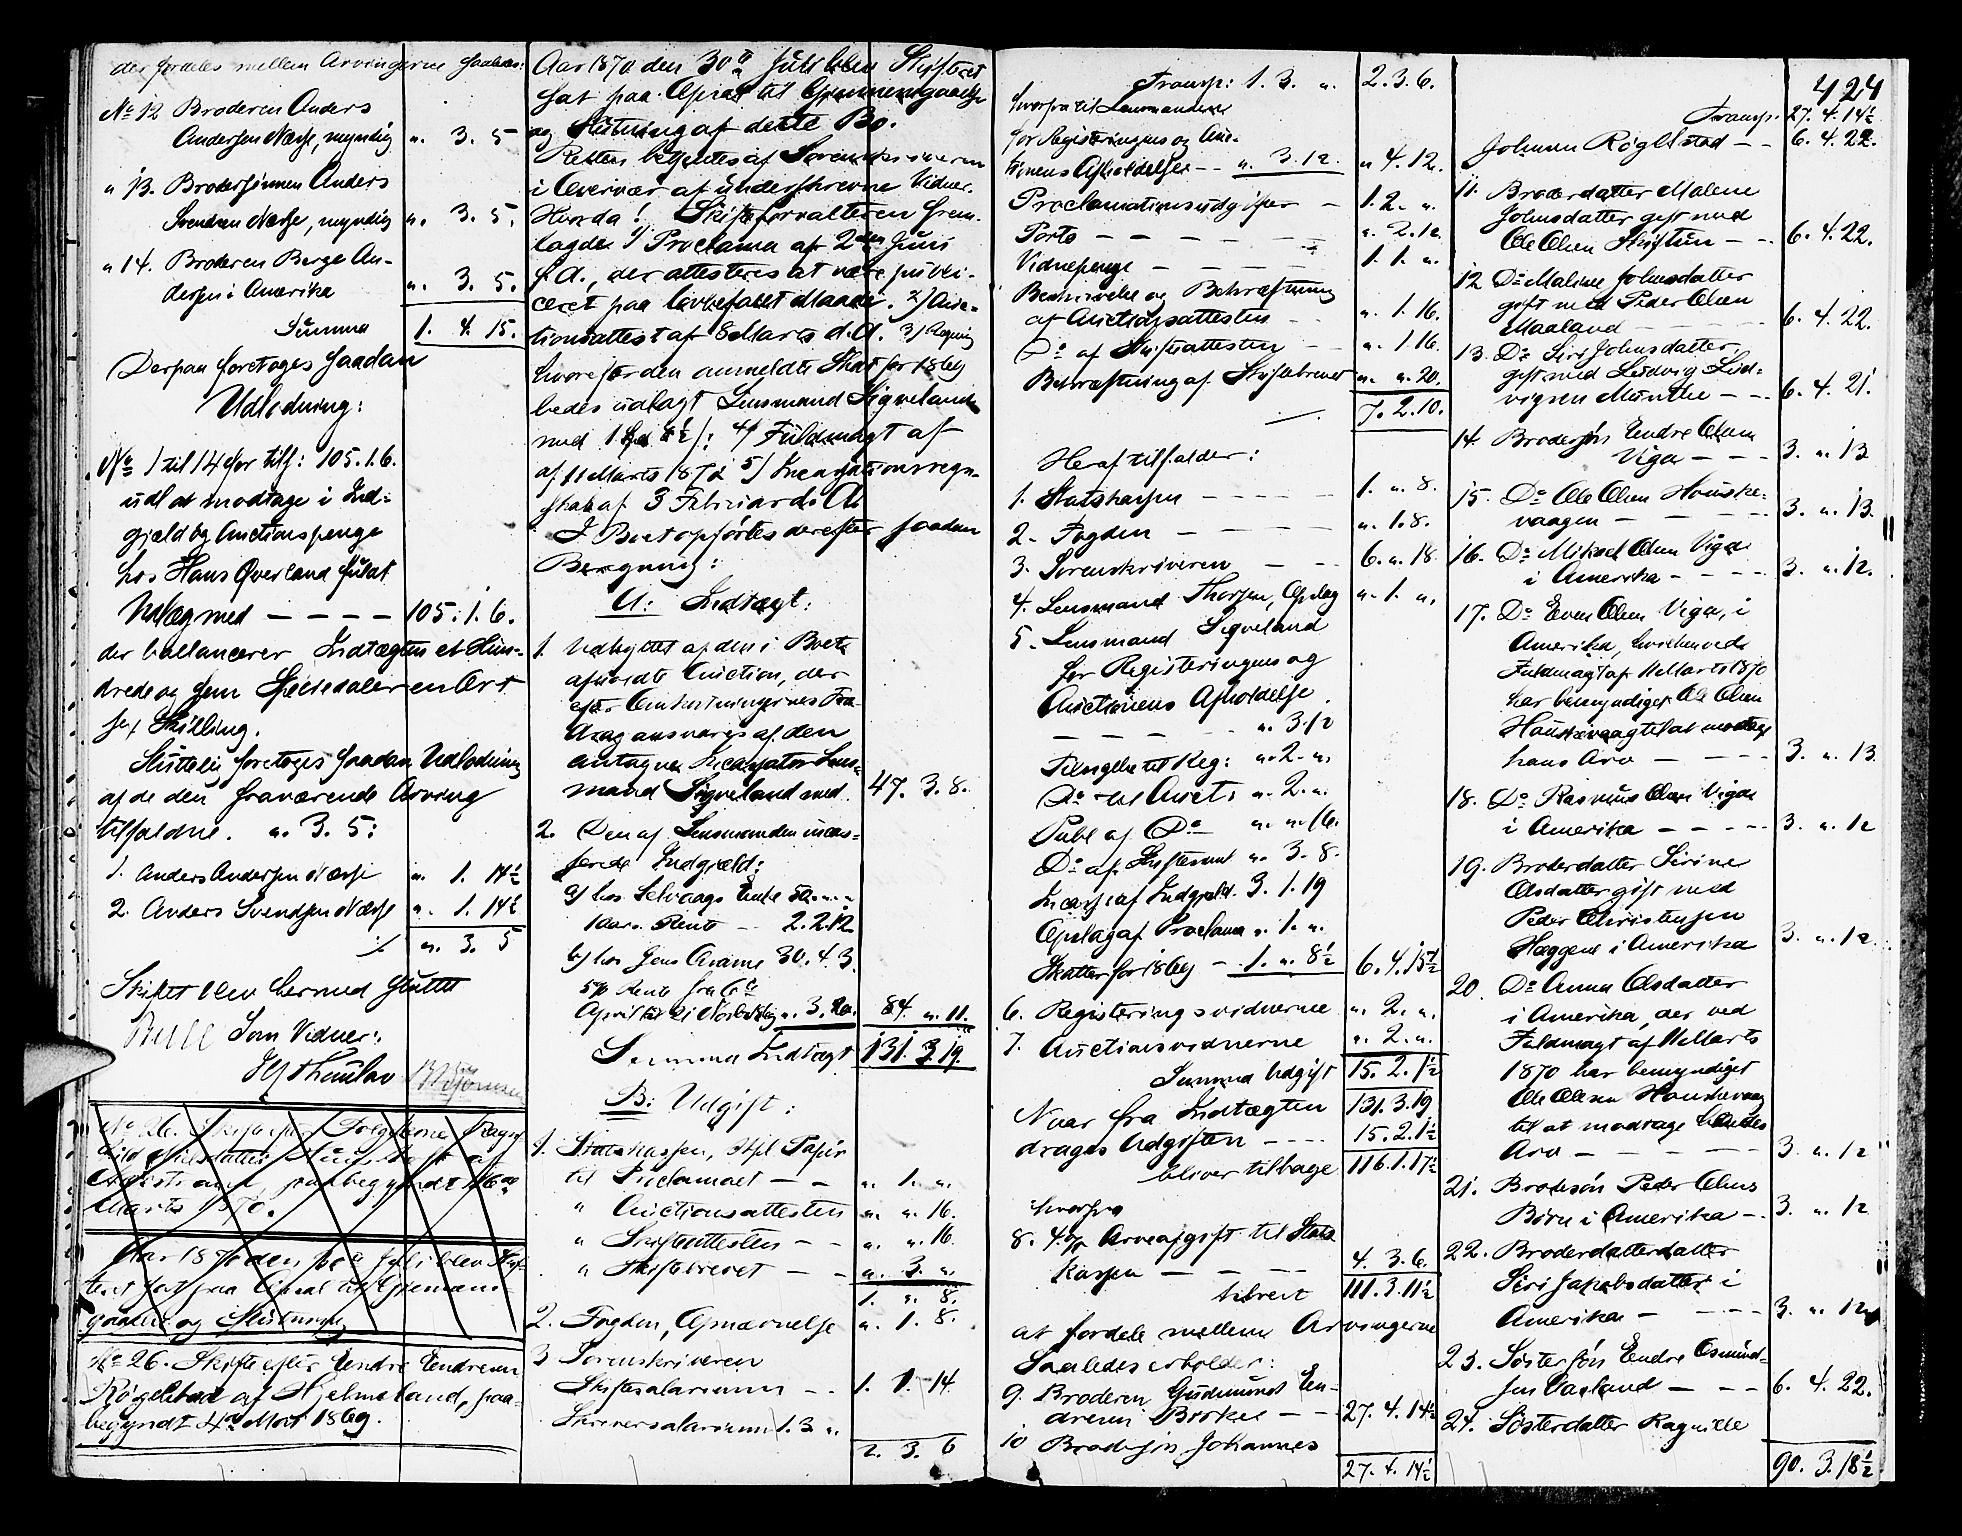 der fordeles mellem Arvingerne saaledes:
No 12 Broderen Anders
Andersen Næsse, myndig " 3. 5
" 13. Brodersønnen Anders
Svendsen Næsse, myndig " 3. 5.
" 14. Broderen Berge An-
dersen i Amerika " 3. 5.
Summa 1. 4. 15.
Derpaa foretoges saadan
Udlodning:
No 1 til 14 for tilf: 105.1.6.
udl at modtage i Ind-
gjæld og Auctionspenge
hos Hans Qverland
Udlæg med - - - - 105.1.6.
der ballancerer Indtægten et Hun-
drede og fem Speciedaler en Ort
sex Skilling.
Sluttelig foretoges saadan Udlodning
af de den fraværende Arving
tilfaldne. " 3. 5:
1. Anders Andersen Næsse " 1. 14½
2. Anders Svendsen Næsse " 1. 14½
" 3. 5
Skiftet blev hermed sluttet
Bull Som Vidner:
No 26. Skifte efter
Marts 1870.
Aar 1870 den Juli blev Skif-
tet sat paa Opraab til Gjennem-
gaaelse og Slutning
No 26. Skifte efter Endre Endresen
Røgelstad af Hjelmeland, paa-
begyndt 4de Mai 1869.
Aar 1870 den 30te Juli blev Skiftet
sat paa Opraab til Gjennemgaaelse
og Slutning af dette Bo.
Retten betjentes af Sorenskriveren
i Overvær af underskrevne Vidner.
Hvorda! Skifteforvalteren frem-
lagde 1) Proclama af 2den Juni
f. A., der attesteres at være publi-
ceret paa lovbefalet Maade. 2) Auc-
tionsattest af 8 Marts d. A. 3) Regning
hvorefter den anmeldte Skat for 1869
bedes udlagt Lensmand Sigveland
med 1 Spd 8½ s: 4) Fuldmagt af
af 11 Marts 1870 5) Incassationsregn-
skab af 3 Februar d. A.
I Boet opførtes derefter saadan
Beregning:
A: Indtægt:
1. Udbyttet af den i Boet
afholdte Auction, der
efter Omkostningernes Fra-
drag ansvares af den
antagne Incassator Lens-
mand Sigveland med 47. 3. 8.
2. Den af Lensmanden incas-
serede Indgjæld:
a) hos Selvaags Enke 50. " "
1 Aars Rente - 2. 2. 12
b) hos Jens Aname 30. 4. 3.
5% Rente fra 6te
April til 21 Novbr 69 " 3. 20. 84. " 11.
Summa Indtægt 131. 3. 19.
B: Udgift:
1. Statskassen, stpl. Papir
til Proclamaet - - " 1. ".
" Auctionsattesten " ". 16.
" Skifteattesten - - " ". 16.
" Skiftebrevet - - " 3. ".
1. " 8.
2. Fogden, Opnævnelse " 1. 8.
3 Sorenskriveren
Skiftesalarium - - 1. 1. 14.
Skriversalarium 1. 3 "
2. 3. 6
Transp: 1. 3. ". 2. 3. 6.
hvorfra til Lensmanden
for Registringens og Auc-
tionens Afholdelse - - " 3. 12. " 4. 12.
Proclamationsudgifter - 1. 2. ".
Porto - - - - - - " 2. 12.
Vidnepenge - - - - - 1. 1. ".
Beskrivelse og Bekræftning
af Auctionsattesten - - " 1. 16.
Do af Skifteattesten - - " 1. 16.
Bekræftning af Skiftebrevet " " 20.
7. 2. 10.
Heraf tilfalder:
1. Statskassen - - - - - 1. " 8.
2. Fogden - - - - - " 1. 8.
3. Sorenskriveren - - - 6. " 18.
4. Lensmand Thorsen, Opslag " 1. ".
5. Lensmand Sigveland
for Registeringens og
Auctionens Afholdelse
- - - - - " 3. 12
Tilsigelse til Reg: " 2. ".
Do til Auct: " 2. ".
Publ af Do " " 16.
Do af Skiftesaml " 3. 8.
Incass: af Indgjæld. 3. 1. 19
Opslag af Proclama " 1. ".
Skatter for 1869 - 1. " 8½ 6. 4. 15½
6. Registeringsvidnerne " 2. ".
7. Auctionsvidnerne " 2. ".
Summa Udgift 15. 2. 1½
Naar fra Indtægten 131. 3. 19.
drages Udgiften - - - - 15. 2. 1½
bliver tilbage 116. 1. 17½
hvorfra
8. 4% Arveafgift til Stats-
kassen - - - - 4. 3. 6.
tilrest 111. 3. 11½
at fordele mellem Arvingerne
Saaledes erholder:
9. Broderen Gudmund En-
dresen - - 27. 4. 14½
10 Brodersøn Johannes
27. 4. 14½
424
Transp. 27. 4. 14½
Johnsen Røgelstad - - 6. 4. 22.
11. Broderdatter Malene
Johnsdatter gift med
Ole Olsen Skiftun - - 6. 4. 22.
12 Do Maline Johnsdatter
gift med Peder Olsen
Maaland - - - - - 6. 4. 22.
13. Do Siri Johnsdatter
gift med Ludvig Lud-
vigsen Munthe - - - 6. 4. 21.
14. Brodersøn Endre Olsen
Viga - - - - 3. " 13
15. Do Ole Olsen Houske-
vaagen - - - - - 3. " 13.
16. Do Mikael Olsen Viga
i Amerika - - - - 3. " 12.
17. Do Even Olsen Viga, i
Amerika, hvilken ved
Fuldmagt af 11 Marts 1870
har bemyndiget Ole Olsen
Houskevaag til at modtage
hans Arv - - - - 3. " 13.
18. Do Rasmus Olsen Viga
i Amerika - - - - 3. " 12
19. Broderdatter Serine
Olsdatter gift med
Peder Christensen
Hæggene i Amerika 3. " 12.
20. Do Anna Olsdatter
i Amerika, der ved
Fuldmagt af 11 Marts
1870 har bemyndiget
Ole Olsen Houskevaag
til at modtage hendes
Arv - - - - - - 3. " 12
21. Brodersøn Peder Olsens
Børn i Amerika - - 3. " 12
22. Broderdatterdatter
Siri Jakobsdatter i
Amerika - - - - - 3. " 12
23. Søstersøn Endre Osmund-
sen Vaeland - - - 6. 4. 22.
24. Søsterdatter Ragnilde
90. 3. 18½